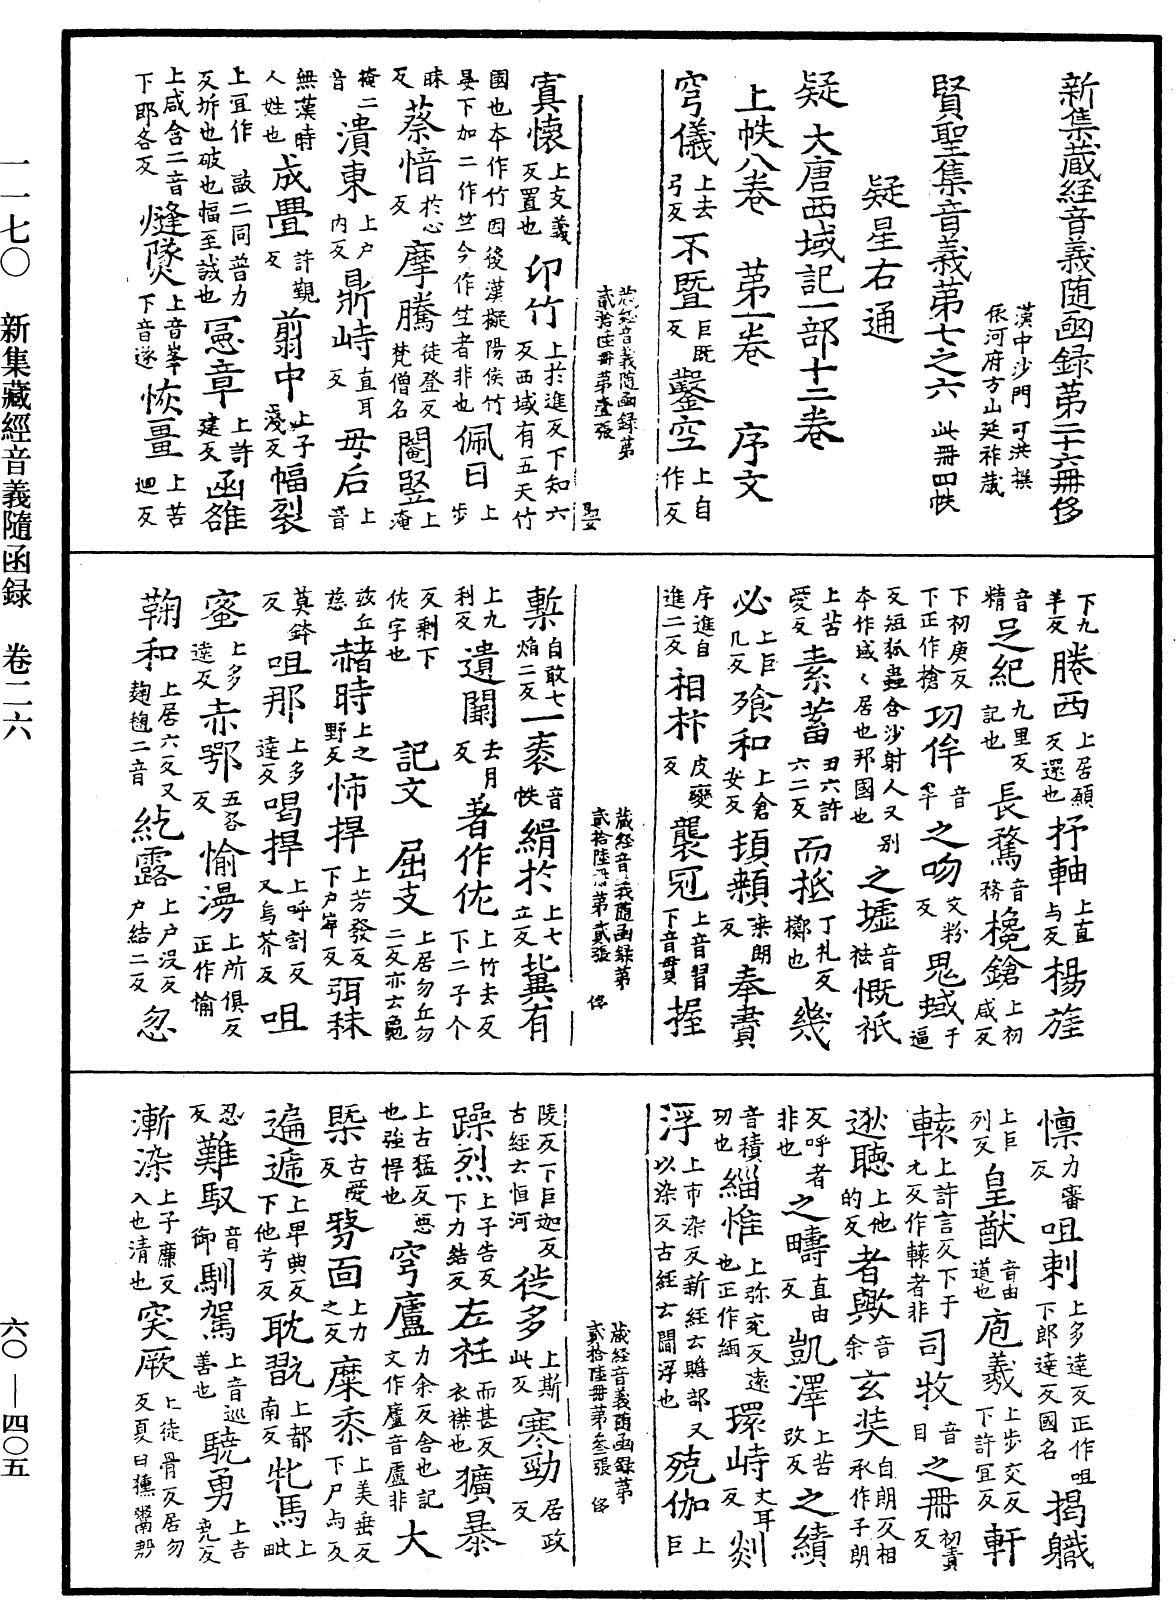 新集藏經音義随函録第二十六冊 侈
漢中沙門 可洪 撰
依河府方山延祚藏
賢聖集音義第七之六 此冊四帙
疑星右通
疑 大唐西域記一部十二卷
上帙八卷 第一卷 序文
穹儀 上去弓反 不暨 巨既反 鑿空 上自作反
寘懷 上支義反置也 印竹 上於進反下知六反西域有五天竹
國也本作竹因後漢擬陽侯竹晏下加二作竺今作笁者非也 佩日 上步
昧反 蔡愔 於心反 摩騰 徒登反梵僧名 閹豎 上淹
掩二音 潰東 上户内反 鼎峙 直耳反 母后 上音
無漢時人姓也 成舋 許覲反 翦中 上子淺反 幅裂
上冝作副二同普力反坼也破也幅至誠也 冕章 上許建反 函雒
上咸含二音下郎各反 烽燧 上音峯下音遂 恢畺 上苦迴反
下九羊反 睠西 上居願反還也 抒軸 上直与反 楊旌
音精 足紀 九里反記也 長騖 音務 欃鎗 上初咸反
下初庚反下正作槍 㓛侔 音牟 之吻 文粉反 鬼蜮 于逼
反短狐蟲含沙射人又别本作域〻居也邦國也 之墟 音袪 慨祇
上苦愛反 素蓄 丑六許六二反 而抵 丁礼反擲也 幾
必 上巨几反 飡和 上倉安反 頏顙 桒朗反 奉賮
序進自進二反 相抃 皮變反 襲冠 上音習下音貫 握
槧 自敢七焰二反 一袠 音帙 緝於 上七立反 冀有
上九利反 遺闕 去月反 著作佐 上竹去反下二子个
反剩下佐字也 記文 屈支 上居勿丘勿二反亦云龜
茲丘慈 赭時 上之野反 怖捍 上芳發反下户岸反 弭秣
莫鉢反 咀那 上多達反 喝捍 上呼割反又烏芥反 咀
蜜 上多達反 赤鄂 五各反 愉漫 上所俱反正作愉
鞠和 上居六反又麹麯二音 紇露 上户没反户結二反 忽
懔 力審反 咀剌 上多達反正作咀下郎達反國名 揭職
上巨列反 皇猷 音由道也 庖羲 上步交反下許冝反 軒
轅 上許言反下于元反作轅者非 司牧 音目 之冊 初責反
逖聴 上他的反 者歟 音余 玄奘 自朗反相承作子朗
反呼者非也 之疇 直由反 凱澤 上苦改反 之績
音積㓛也 緬惟 上弥兖反遠也正作緬 環峙 丈耳反 剡
浮 上市染反新經云贍部又以染反古經云閻浮也 殑伽 上巨
陵反下巨迦反古經云恒河 徙多 上斯此反 寒勁 居政反
躁烈 上子告反下力結反 左衽 而甚反衣襟也 獷暴
上古猛反惡也強悍也 穹廬 力余反舍也記文作廬音盧非 大
槩 古愛反 剺面 上力之反 糜黍 上美垂反下尸与反
遍遆 上卑典反下他兮反 耽翫 上都南反 牝馬 上毗
忍反 難馭 音御 馴駕 上音巡善也 驍勇 上吉尭反
漸染 上子廉反入也清也 突厥 上徒骨反居勿反夏曰獯鬻
藏經音義随函録第貳拾陸冊第壹張 侈
藏經音義随函録第貳拾陸冊第貳張 侈
藏經音義随函録第貳拾陸冊第叁張 侈
一一七〇 新集藏經音義隨函録 卷二六
六〇—四〇五